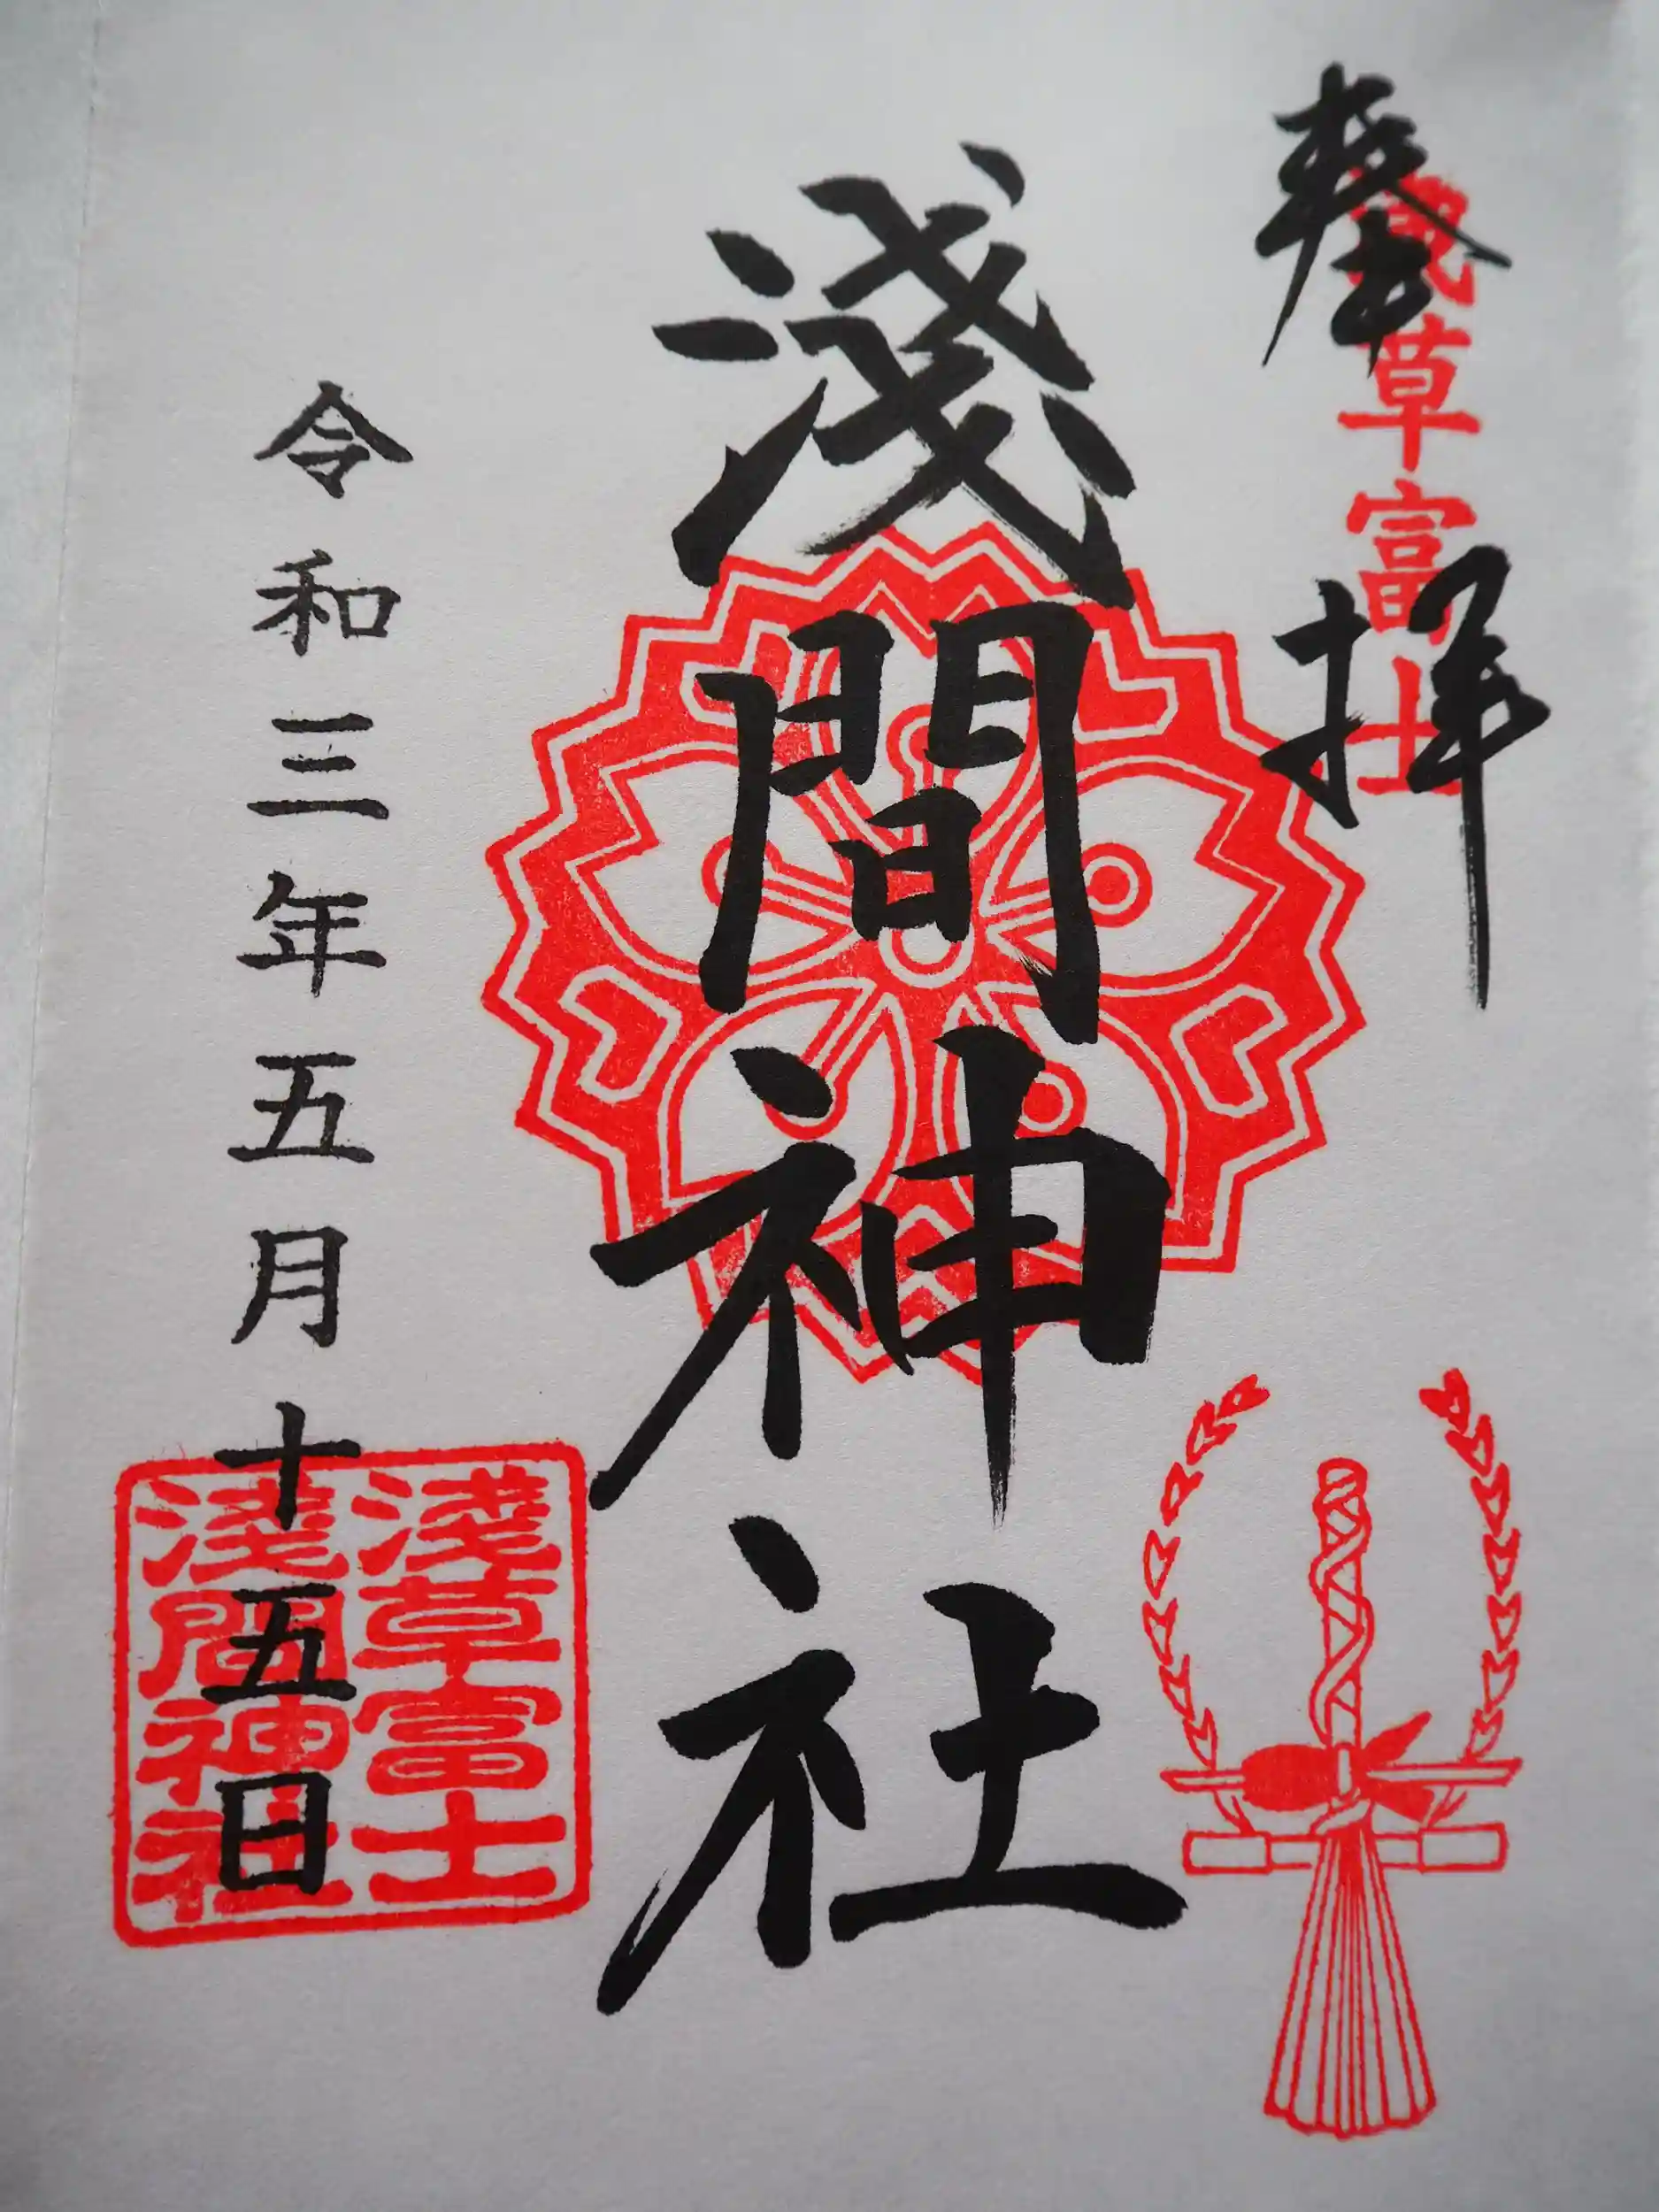 奉拝
淺草富士
淺間神社
令和三年五月十五日
淺草富士
淺間神社